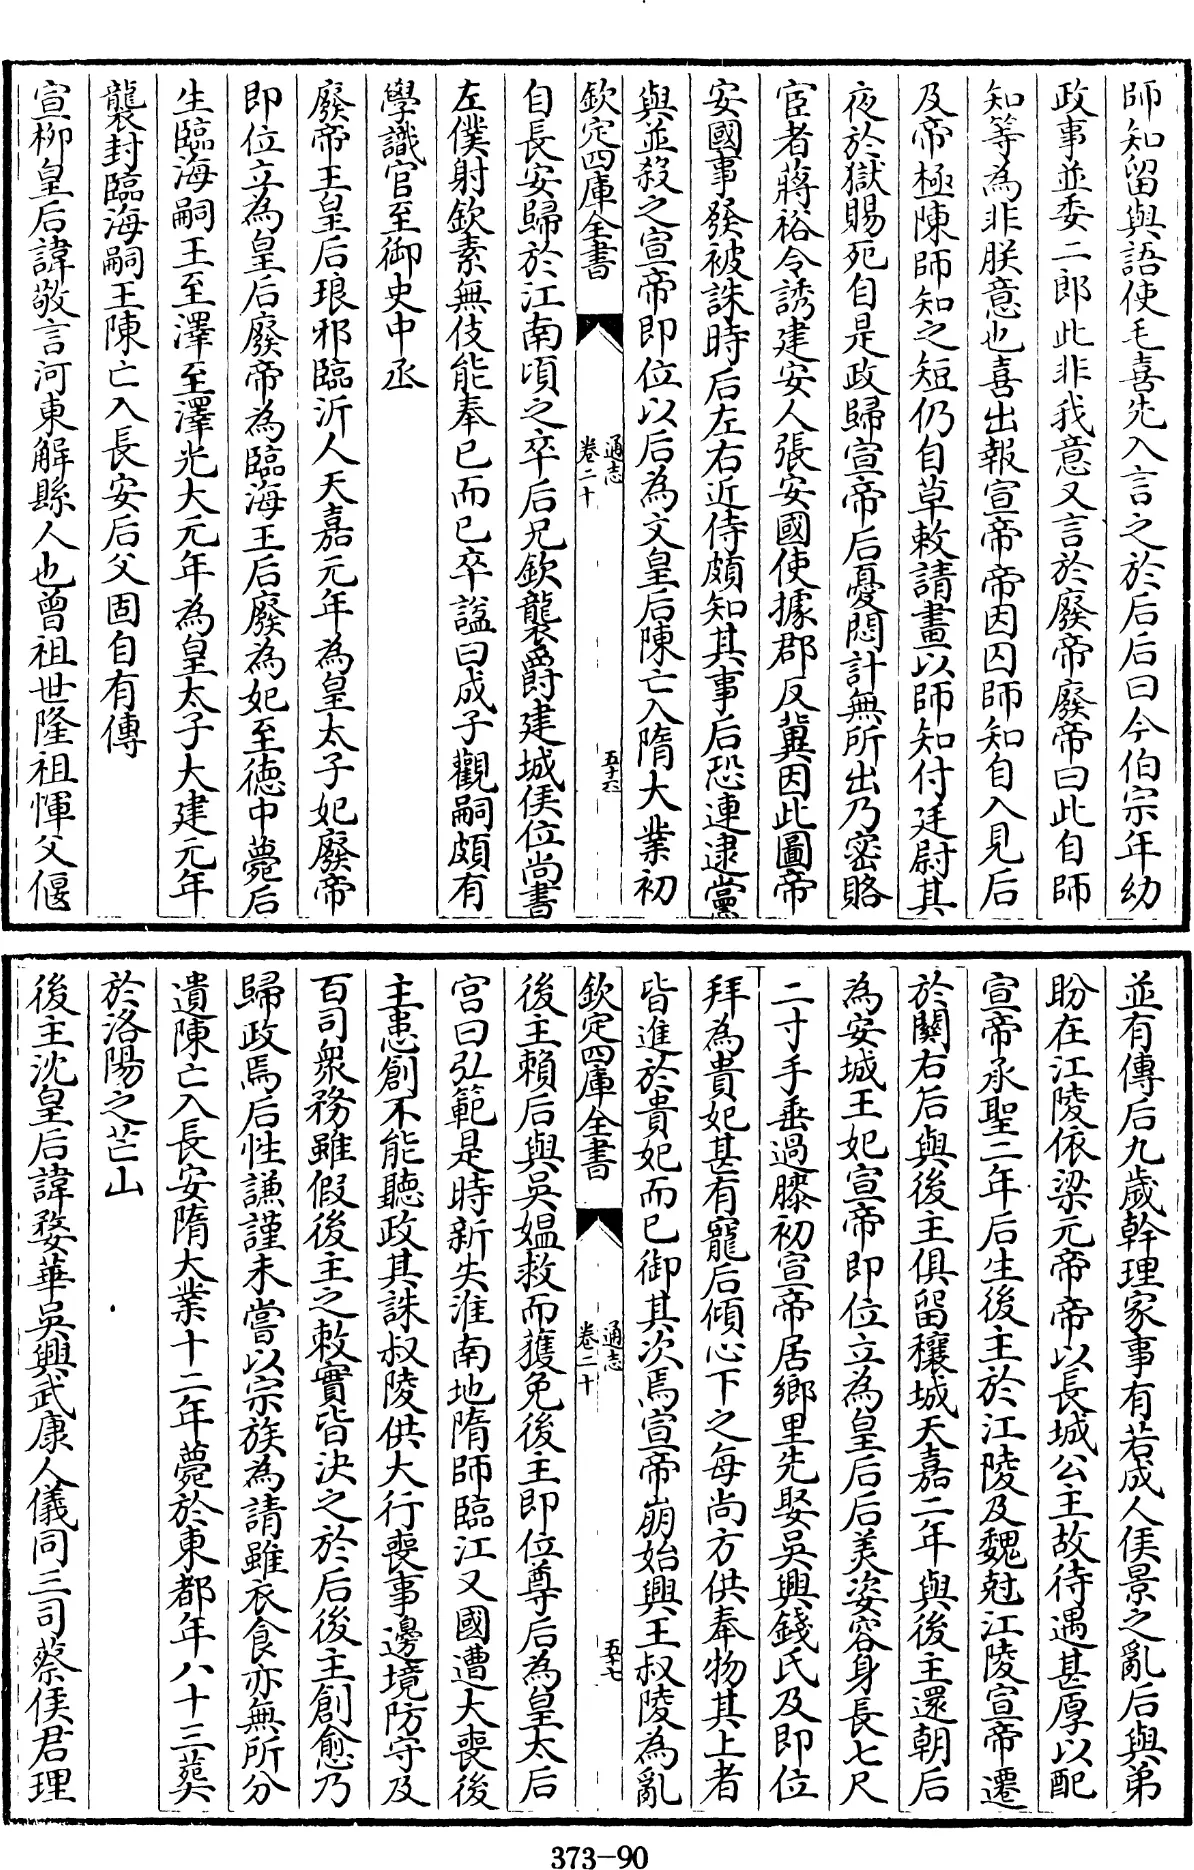 師知留與語使毛喜先入言之於后后曰今伯宗年幼
政事並委二郎此非我意又言於廢帝廢帝曰此自師
知等為非朕意也喜出報宣帝帝因囚師知自入見后
及帝極陳師知之短仍自草敕請畫以師知付廷尉其
夜於獄賜死自是政歸宣帝后憂悶計無所出乃密賂
宦者蔣裕令誘建安人張安國使據郡反冀因此圖帝
安國事發被誅時后左右近侍頗知其事后恐連逮黨
與並殺之宣帝即位以后為文皇后陳亡入隋大業初
欽定四庫全書
通志
卷二十
五十六
自長安歸於江南頃之卒后兄欽襲爵建城侯位尚書
左僕射欽素無伎能奉已而已卒諡曰成子觀嗣頗有
學識官至御史中丞
廢帝王皇后琅邪臨沂人天嘉元年為皇太子妃廢帝
即位立為皇后廢帝為臨海王后廢為妃至德中薨后
生臨海嗣王至澤至澤光大元年為皇太子大建元年
襲封臨海嗣王陳亡入長安后父固自有傳
宣柳皇后諱敬言河東解縣人也曾祖世隆祖惲父偃
並有傳后九歲幹理家事有若成人侯景之亂后與弟
盼在江陵依梁元帝帝以長城公主故待遇甚厚以配
宣帝承聖二年后生後主於江陵及魏尅江陵宣帝遷
於關右后與後主俱留穰城天嘉二年與後主還朝后
為安城王妃宣帝即位立為皇后后美姿容身長七尺
二寸手垂過膝初宣帝居鄉里先娶吳興錢氏及即位
拜為貴妃甚有寵后傾心下之每尚方供奉物其上者
皆進於貴妃而已御其次焉宣帝崩始興王叔陵為亂
欽定四庫全書
通志
卷二十
五十七
後主賴后與吳媼救而獲免後主即位尊后為皇太后
宮曰弘範是時新失淮南地隋師臨江又國遭大喪後
主患創不能聽政其誅叔陵供大行喪事邊境防守及
百司衆務雖假後主之敕實皆決之於后後主創愈乃
歸政焉后性謙謹未嘗以宗族為請雖衣食亦無所分
遺陳亡入長安隋大業十二年薨於東都年八十三葬
於洛陽之芒山
後主沈皇后諱婺華吳興武康人儀同三司蔡侯君理
373-90